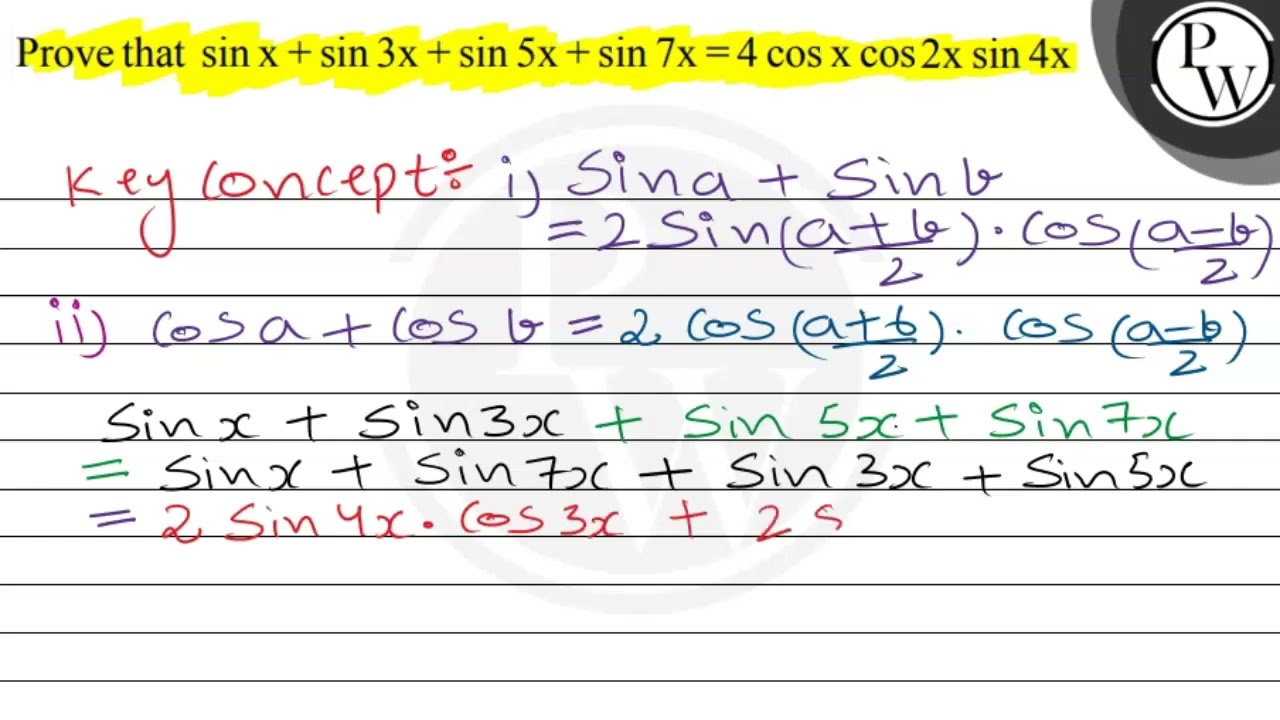 Prove that sin x + sin 3x + sin 5x + sin 7x = 4 cos x cos 2x sin 4x
P
W
Key Concept÷ i) Sin a + Sin b
= 2 Sin(a+b/2) · Cos(a-b/2)
ii) Cos a + Cos b = 2 Cos(a+b/2) · Cos(a-b/2)
Sin x + Sin 3x + Sin 5x + Sin 7x
= Sin x + Sin 7x + Sin 3x + Sin 5x
= 2 Sin 4x · Cos 3x + 2 S